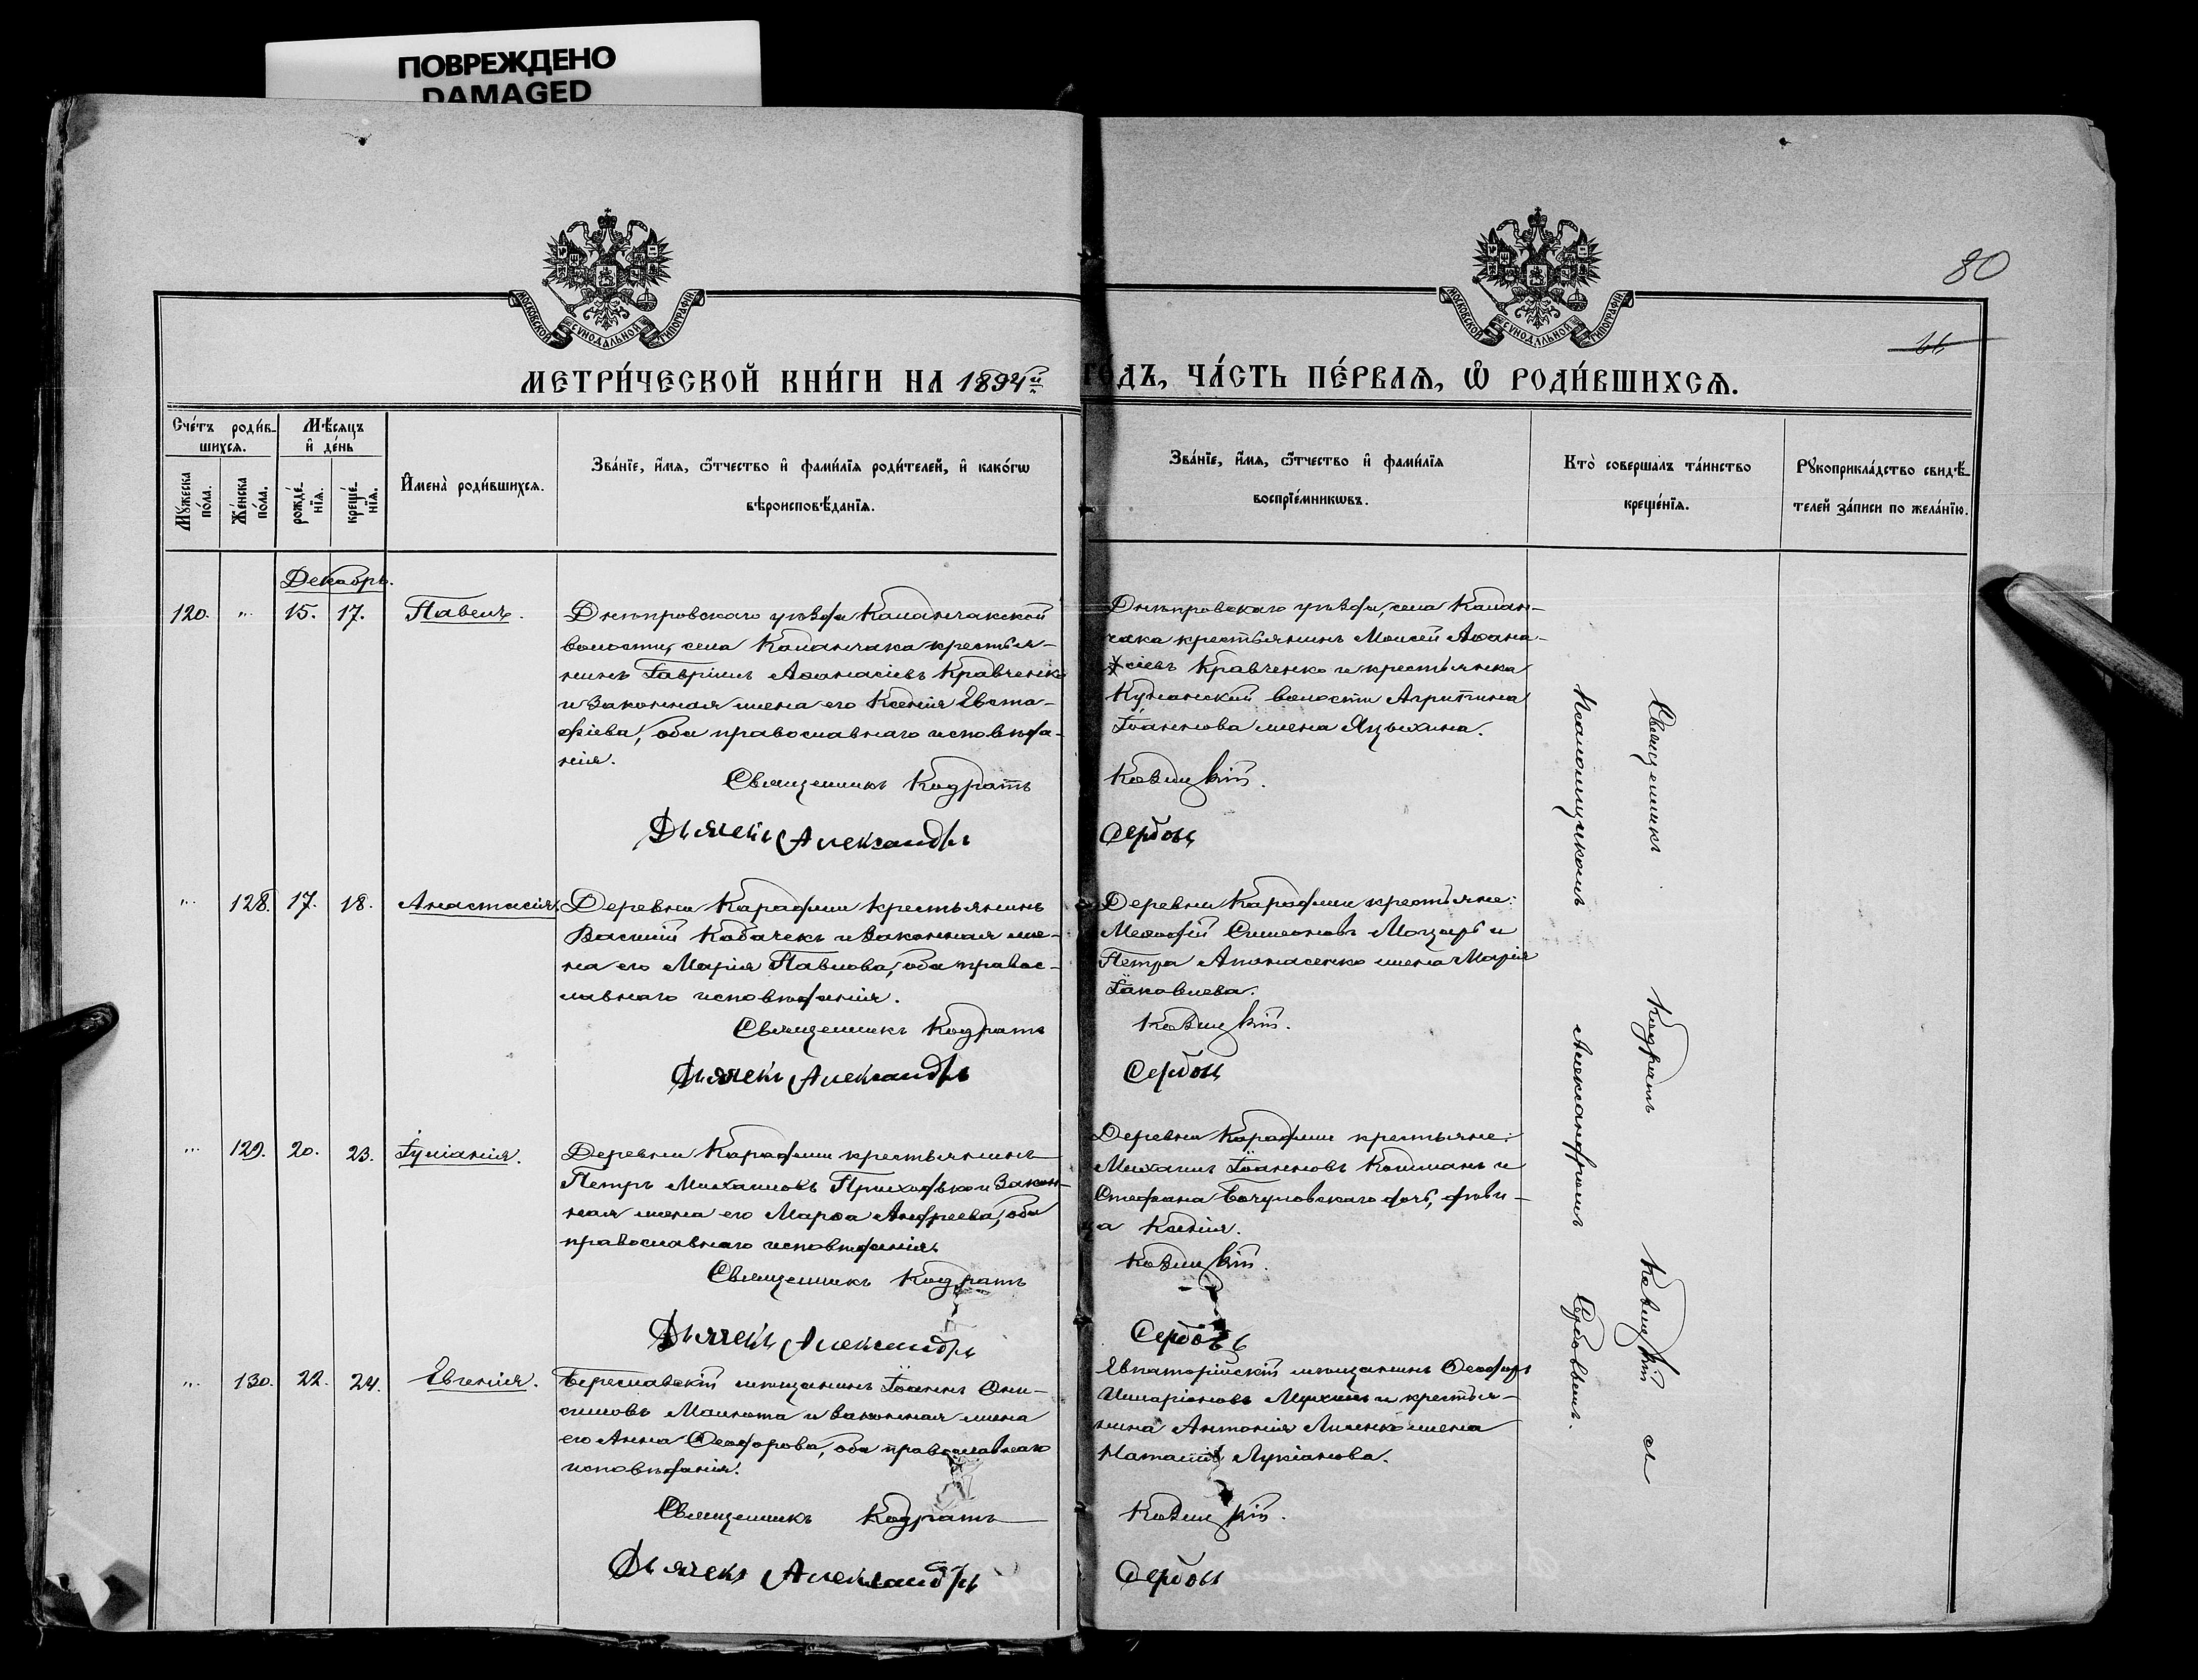 ПОВРЕЖДЕНО
DAMAGED
МОСКОВСКОЙ СУНОДАЛЬНОЙ ТИПОГРАФІИ
МОСКОВСКОЙ СУНОДАЛЬНОЙ ТИПОГРАФІИ
80
МЕТРИ́ЧЕСКОЙ КНИ́ГИ НА 1894й
ГО́ДЪ, ЧА́СТЬ ПЕ́РВАѦ, Ѡ РОДИ́ВШИХСѦ.
Сче́тъ роди́в-
шихсѧ.
Мꙋ́жеска по́ла.
Же́нска по́ла.
Мѣ́сѧцъ
и҆ де́нь
рожде́-
нїѧ.
креще́-
нїѧ.
И҆мена̀ роди́вшихсѧ.
Зва́нїе, и҆́мѧ, ѻ҆́тчество и҆ фами́лїѧ роди́телей, и҆ како́гѡ
вѣроисповѣ́данїѧ.
Зва́нїе, и҆́мѧ, ѻ҆́тчество и҆ фами́лїѧ
воспрїе́мникѡвъ.
Кто̀ соверша́лъ та́инство
креще́нїѧ.
Рꙋкоприкла́дство свидѣ́-
телей за́писи по жела́нїю.
Декабрь.
120. " 15. 17. Павелъ.
Днѣпровскаго уѣзда Каланчакской
волости, села Каланчака крестья-
нинъ Гавріилъ Аѳанасіевъ Кравченко
и законная жена его Ксенія Евста-
фіева, оба православнаго исповѣда-
нія.
Священникъ Кодратъ
Дьячекъ Александръ
Днѣпровскаго уѣзда, села Калан-
чака крестьянинъ Моисей Аѳана-
сіевъ Кравченко и крестьянка
волости Агрипина
Іоаннова жена Языкина.
Сербовъ
" 128. 17. 18. Анастасія.
Деревни Караджи крестьянинъ
Василій Кабачекъ и законная же-
на его Марія Павлова, оба правос-
лавнаго исповѣданія.
Священникъ Кодратъ
Дьячекъ Александръ
Деревни Караджи крестьяне:
Меѳодій Симеоновъ и
Петра Апанасенко жена Марія
Іаковлева.
Сербовъ
" 129. 20. 23. Іуліанія.
Деревни Караджи крестьянинъ
Петръ Михаиловъ Приходько и закон-
ная жена его Марѳа Андреева, оба
православнаго исповѣданія
Священникъ Кодратъ
Дьячекъ Александръ
Деревни Караджи крестьяне:
Михаилъ Іоанновъ и
Стефана дочь, дѣви-
ца Ксенія.
Сербовъ
" 130. 22. 24. Евгенія.
Береславскій мѣщанинъ Іоаннъ Они-
симовъ и законная жена
его Анна Ѳеодорова, оба православнаго
исповѣданія.
Священникъ Кодратъ
Дьячекъ Александръ
Евпаторійскій мѣщанинъ Ѳеодоръ
Иларіоновъ и крестья-
нина Антонія жена
Наталія Лукіанова.
Сербовъ
Священникъ Кодратъ съ
Псаломщикомъ Александромъ Сербовымъ.